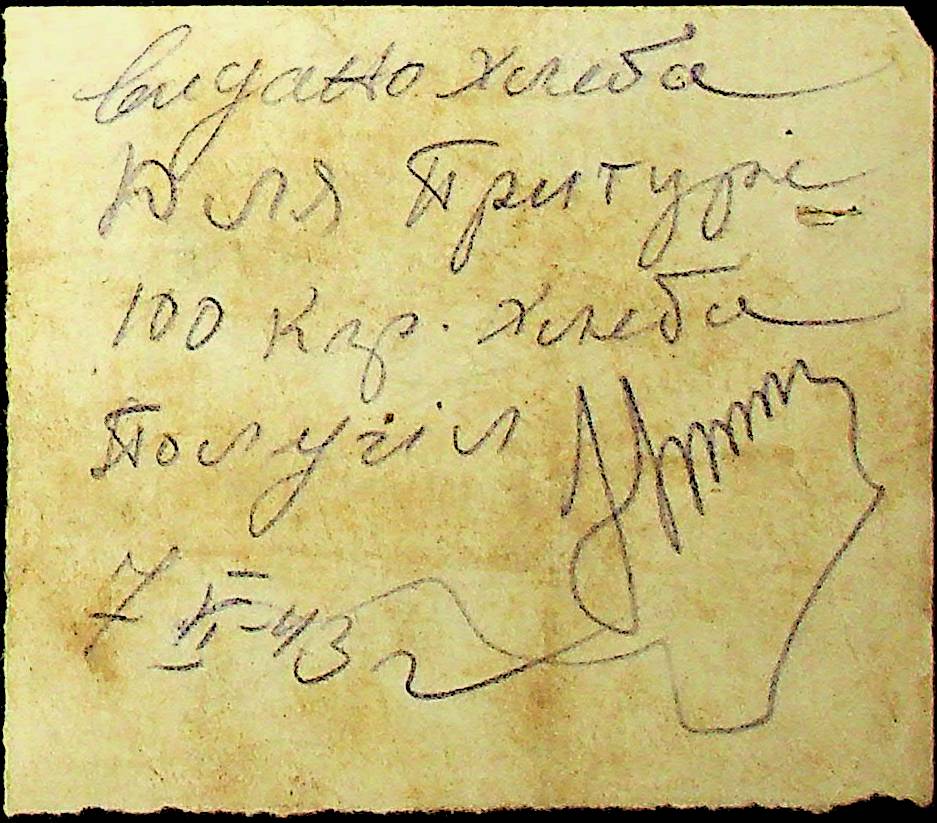 Видано хлеба
Для Притурі
100 кгр. хлеба
Получіл
7 VI-43 г